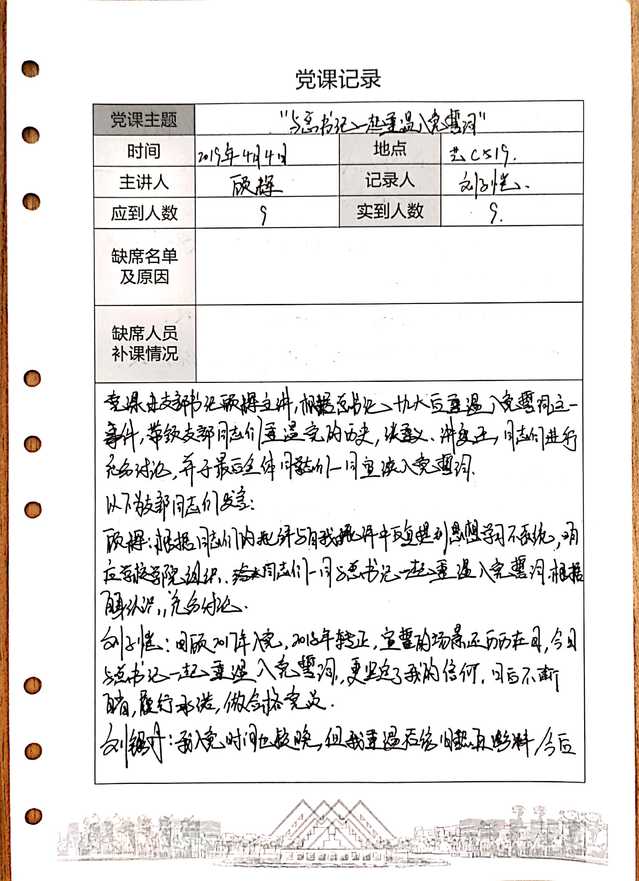 党课记录
党课主题 "与总书记一起重温入党誓词"
时间 2019年4月4日 地点 艺C519.
主讲人 顾辉 记录人 刘子恺.
应到人数 9 实到人数 9.
缺席名单
及原因
缺席人员
补课情况
党课由支部书记顾辉主讲,根据总书记入十九大后重温入党誓词这一
事件,带领支部同志们重温党的历史,谈意义、讲变迁,同志们进行
充分讨论,并于最后全体同志们一同宣读入党誓词.
以下为支部同志们发言:
顾辉:根据同志们的批评与自我批评中反复提到思想学习不系统,响
应学校学院组织,同志们一同与总书记一起重温入党誓词.根据
自身认识,充分讨论.
刘子恺:回顾2017年入党,2018年转正,宣誓的场景还历历在目,今日
与总书记一起重温入党誓词,更坚定了我的信仰.日后不断
自省,履行承诺,做合格党员.
刘 :我入党时间也较晚,但我重温后依旧 今后